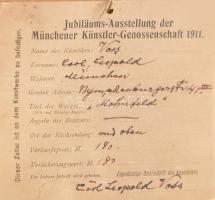 Jubiläums-Ausstellung der
Münchener Künstler-Genossenschaft 1911.
Name des Künstlers: Voss
Vorname: Carl Leopold
Wohnort: München
Genaue Adresse: Nymphenburgerstr.
Titel des Werkes: "Mohnfeld"
Angabe des Besitzers:
Ort der Rücksendung: wie oben
Verkaufspreis: M. 180.
Versicherungswert: M. 180
Um leserliche Schrift wird gebeten.
Eigenhändige Unterschrift des Ausstellers:
Carl Leopold Voss
Dieser Zettel ist an dem Kunstwerke zu befestigen.